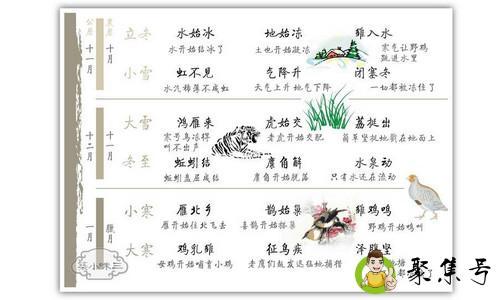 公历
农历
十一月
十月
立冬 水始冰 地始冻 雉入水
水开始结冰了 土也开始凝冻 寒气让野鸡
躲进水里
小雪 虹不见 气降升 闭塞冬
水汽稀薄不成虹 天气上升地气下降 一切都被冻住了
十二月
十一月
大雪 鸿雁来 虎始交 荔挺出
寒号鸟冻得 老虎开始交配 坚挺地戳在地面上
叫不出声
冬至 蚯蚓结 麋角解 水泉动
蚯蚓盖层成结 麋角开始脱落 只有水还在流动
一月
腊月
小寒 雁北乡 鹊始巢 雉鸡鸣
雁开始往北飞去 喜鹊开始搭巢 野鸡开始鸣叫
大寒 鸡乳雉 征鸟疾
母鸡开始哺育小鸡 迅猛地捕捞
聚集号